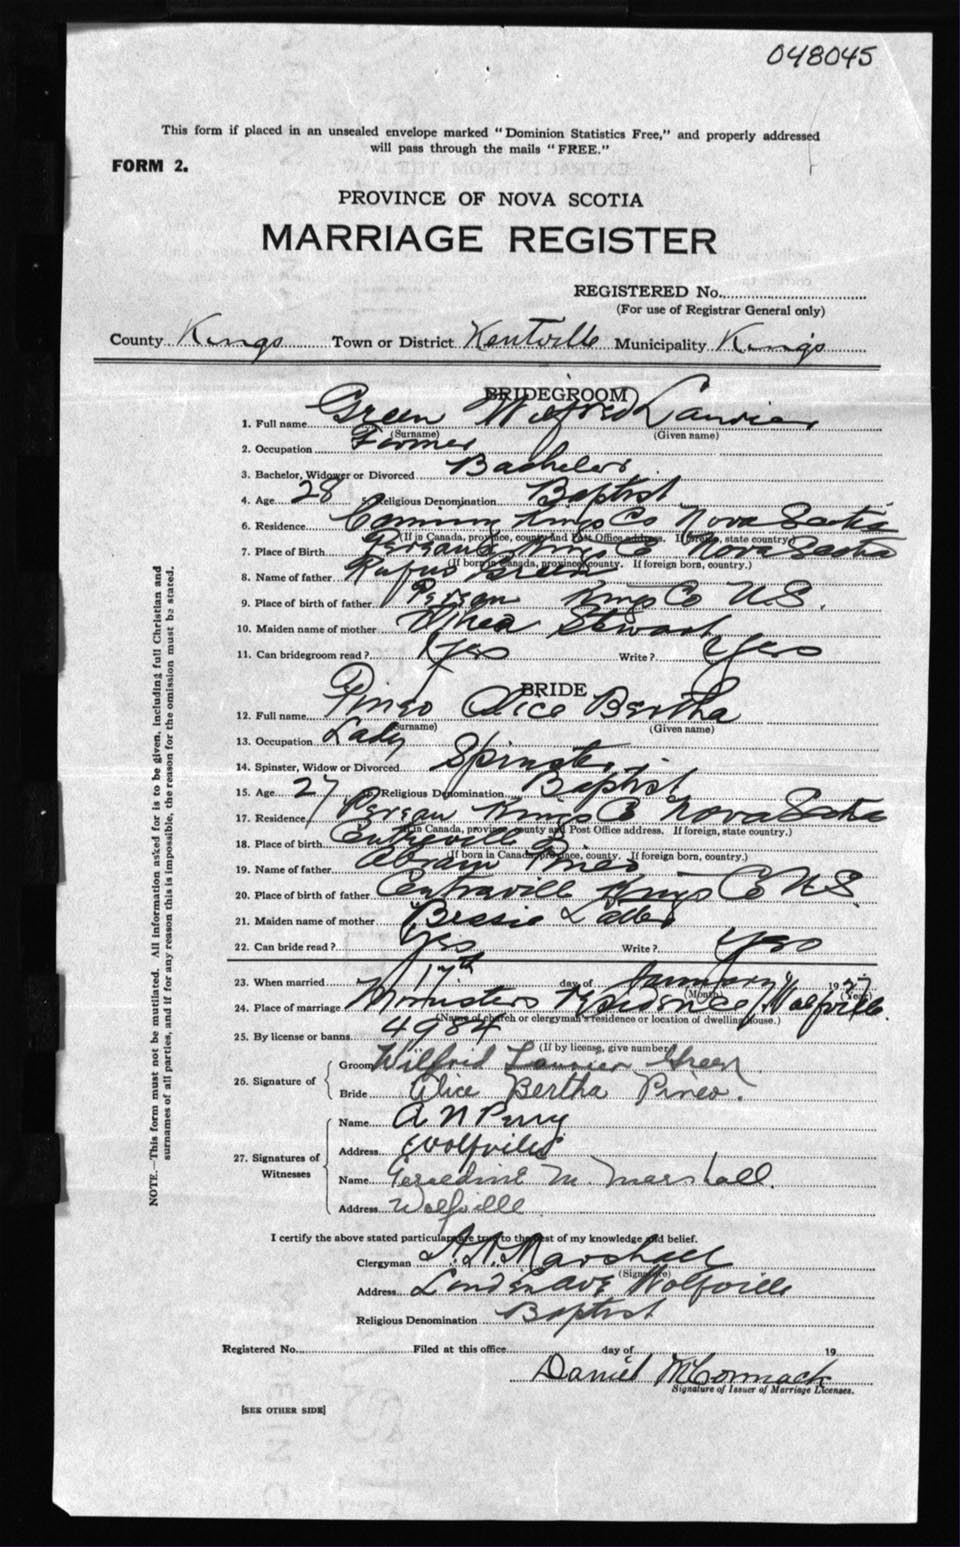 048045
This form if placed in an unsealed envelope marked "Dominion Statistics Free," and properly addressed
will pass through the mails "FREE."
FORM 2.
PROVINCE OF NOVA SCOTIA
MARRIAGE REGISTER
REGISTERED No.
(For use of Registrar General only)
County Kings Town or District Kentville Municipality Kings
BRIDEGROOM
1. Full name Green Wilfred Laurier
(Surname) (Given name)
2. Occupation Farmer
3. Bachelor, Widower or Divorced Bachelor
4. Age 28 5. Religious Denomination Baptist
6. Residence Canning Kings Co Nova Scotia
(If in Canada, province, county and Post Office address. If foreign, state country)
7. Place of Birth Pereau Kings Co Nova Scotia
(If born in Canada, province, county. If foreign born, country.)
8. Name of father Rufus Green
9. Place of birth of father Pereau Kings Co N.S.
10. Maiden name of mother Steward
11. Can bridegroom read? Yes Write? Yes
BRIDE
12. Full name Pineo Alice Bertha
(Surname) (Given name)
13. Occupation Lady
14. Spinster, Widow or Divorced Spinster
15. Age 27 16. Religious Denomination Baptist
17. Residence Pereau Kings Co Nova Scotia
(If in Canada, province, county and Post Office address. If foreign, state country.)
18. Place of birth Centreville
(If born in Canada, province, county. If foreign born, country.)
19. Name of father Abram Pineo
20. Place of birth of father Centraville Kings Co N.S.
21. Maiden name of mother Bessie
22. Can bride read? Yes Write? Yes
23. When married 17th day of January 1927
(Month) (Year)
24. Place of marriage Ministers Residence, Wolfville.
(Name of church or clergyman's residence or location of dwelling house.)
25. By license or banns 4984
(If by license, give number)
26. Signature of Groom Wilfrid Laurier Green
Bride Alice Bertha Pineo.
27. Signatures of Witnesses
Name A N Perry
Address Wolfville
Name Geraldine M. Marshall.
Address Wolfville
I certify the above stated particulars are true to the best of my knowledge and belief.
Clergyman A. A. Marshall
(Signature)
Address Linden Ave Wolfville
Religious Denomination Baptist
Registered No. Filed at this office day of 19
Daniel McCormack
Signature of Issuer of Marriage Licenses.
[SEE OTHER SIDE]
NOTE.—This form must not be mutilated. All information asked for is to be given, including full Christian and
surnames of all parties, and if for any reason this is impossible, the reason for the omission must be stated.